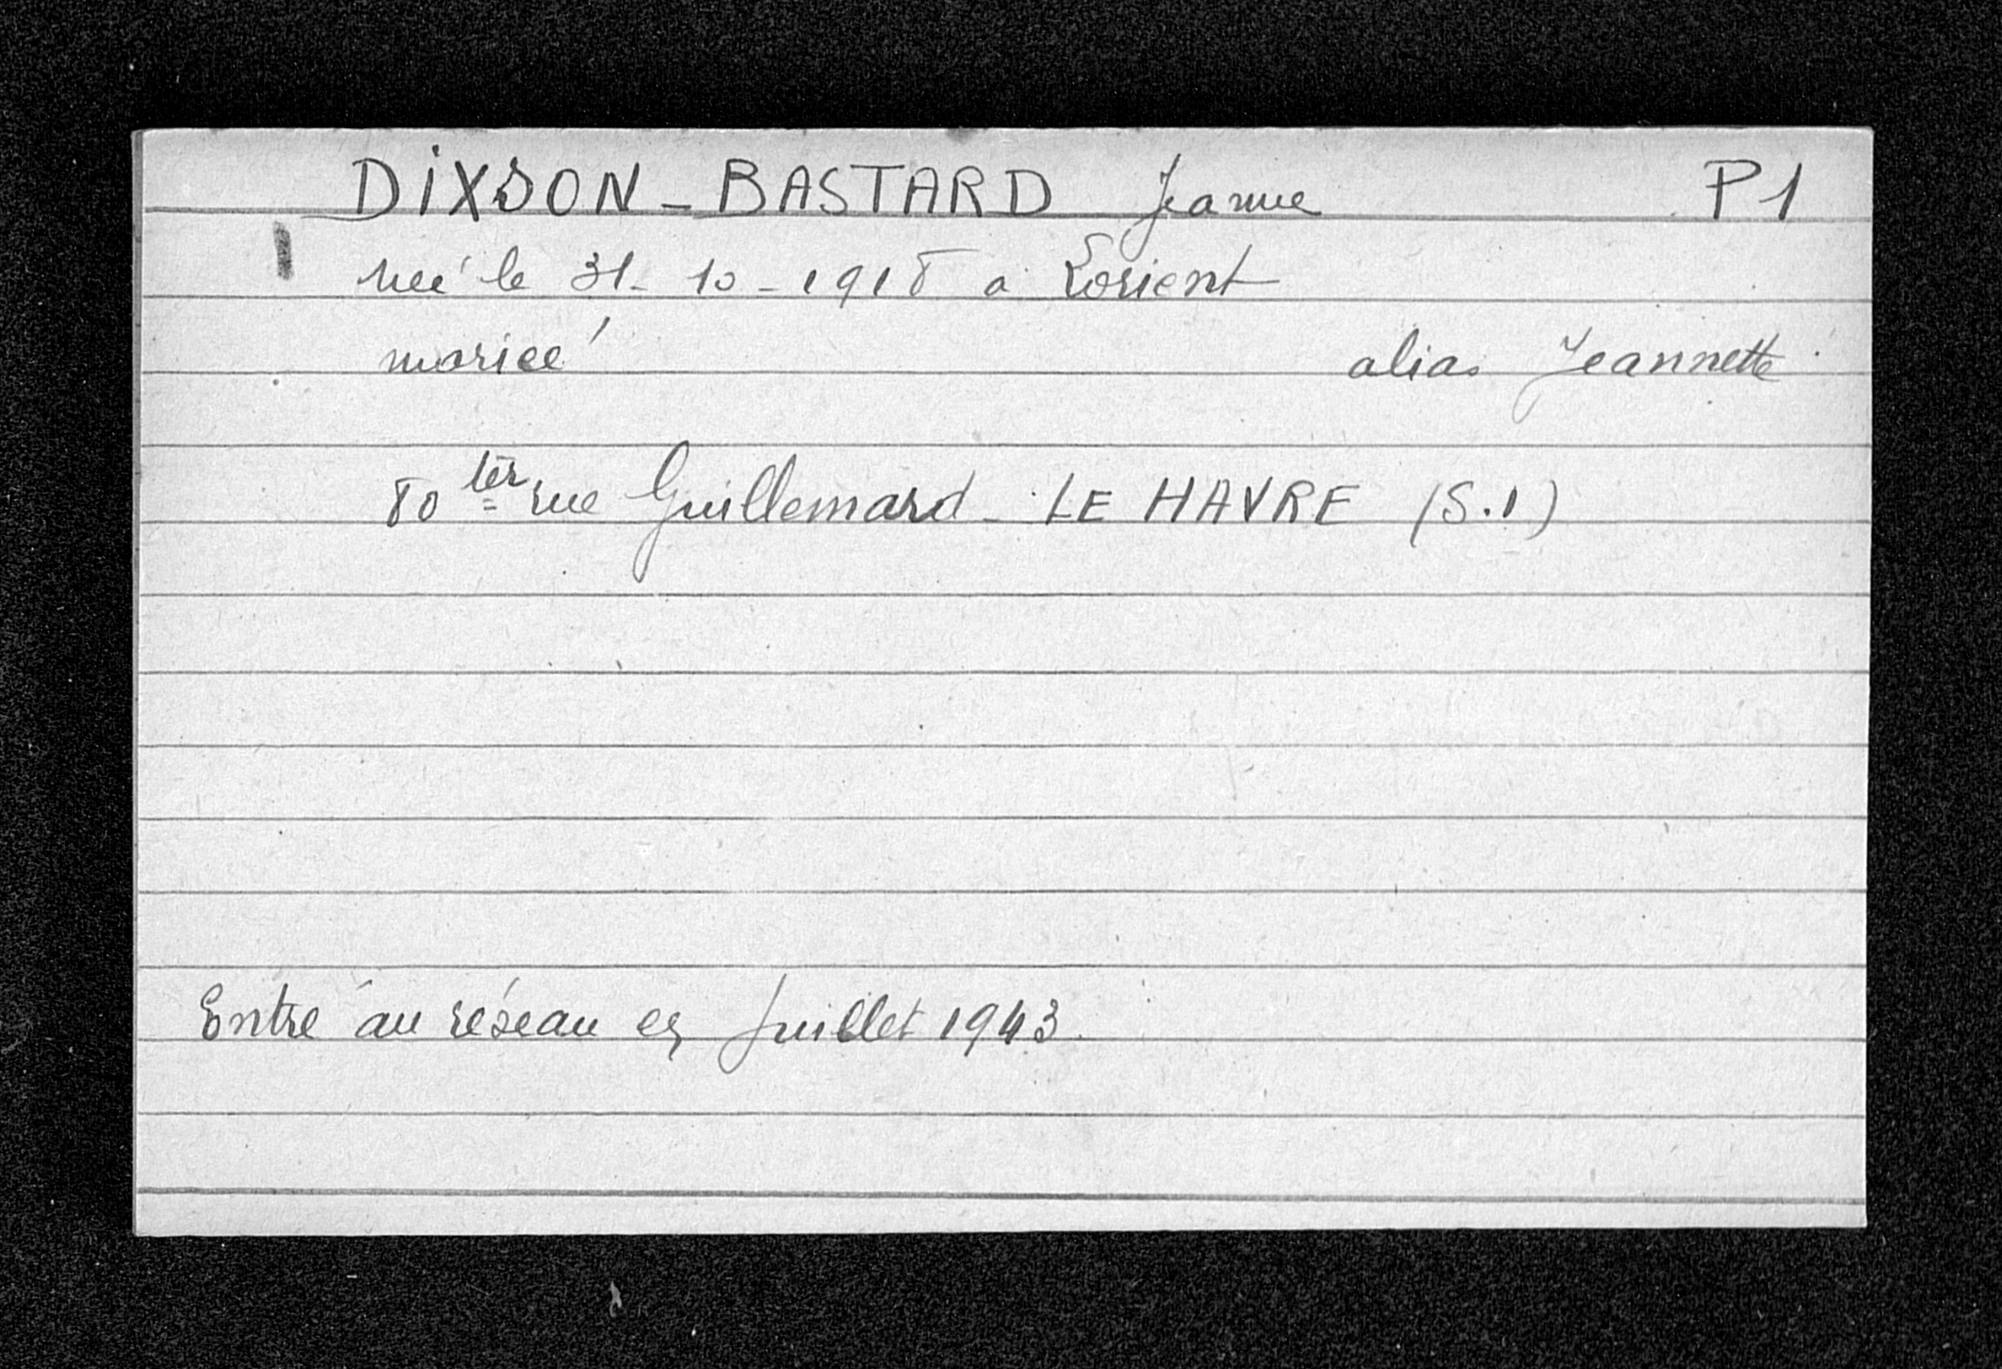 DIXSON - BASTARD Jeanne P1
née le 31 - 10 - 1918 a Lorient
mariée alias Jeannette
80 ter rue Guillemard - LE HAVRE (S.I)
Entré au réseau en Juillet 1943